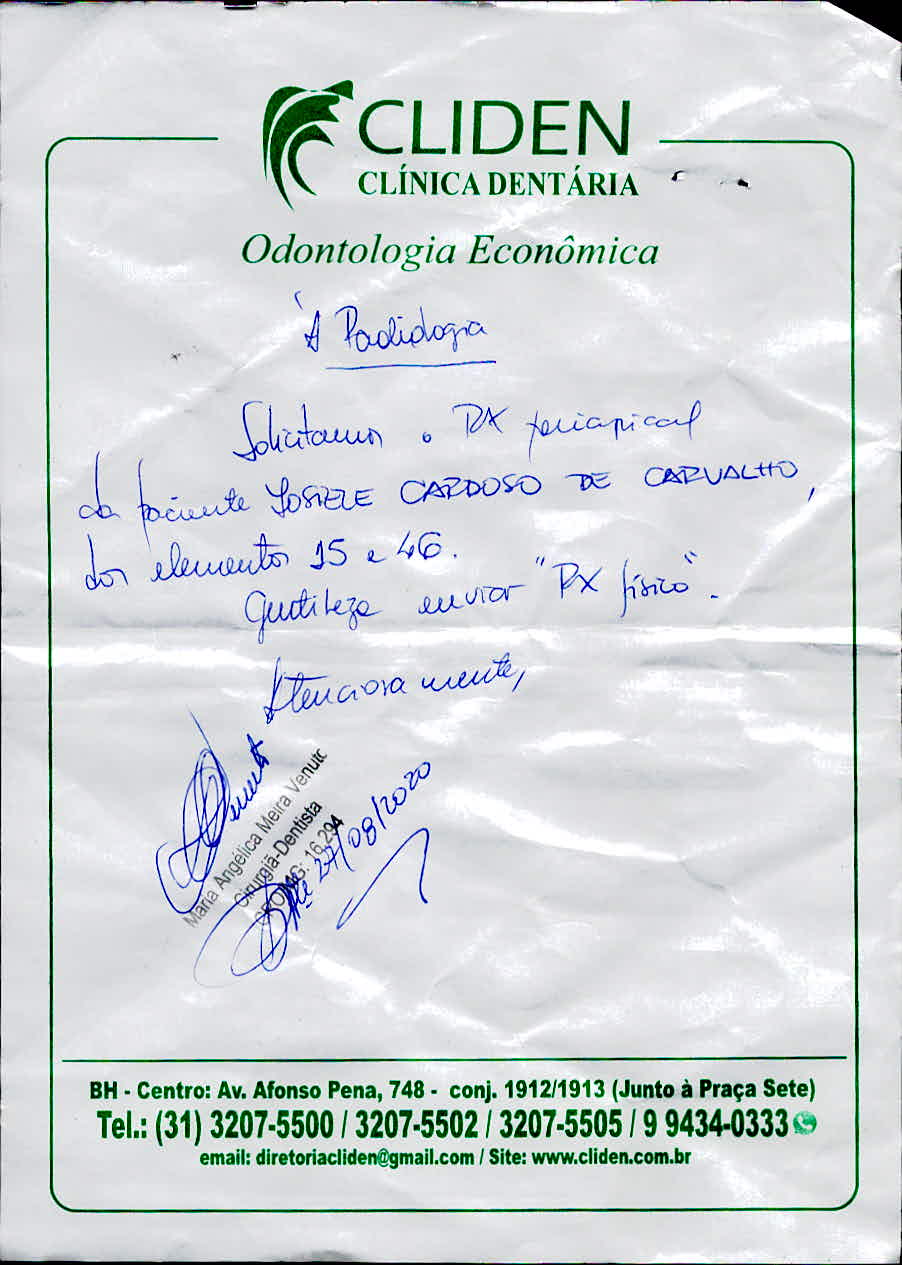 CLIDEN
CLÍNICA DENTÁRIA
Odontologia Econômica
À Radiologia
Solicitamos o RX periapical
da paciente JOSIELE CARDOSO DE CARVALHO,
dos elementos 15 e 46.
Gentileza enviar "RX físico".
Atenciosamente,
Maria Angélica Meira Venuto
Cirurgiã-Dentista
CROMG: 16.294
27/08/2020
BH - Centro: Av. Afonso Pena, 748 - conj. 1912/1913 (Junto à Praça Sete)
Tel.: (31) 3207-5500 / 3207-5502 / 3207-5505 / 9 9434-0333
email: diretoriacliden@gmail.com / Site: www.cliden.com.br